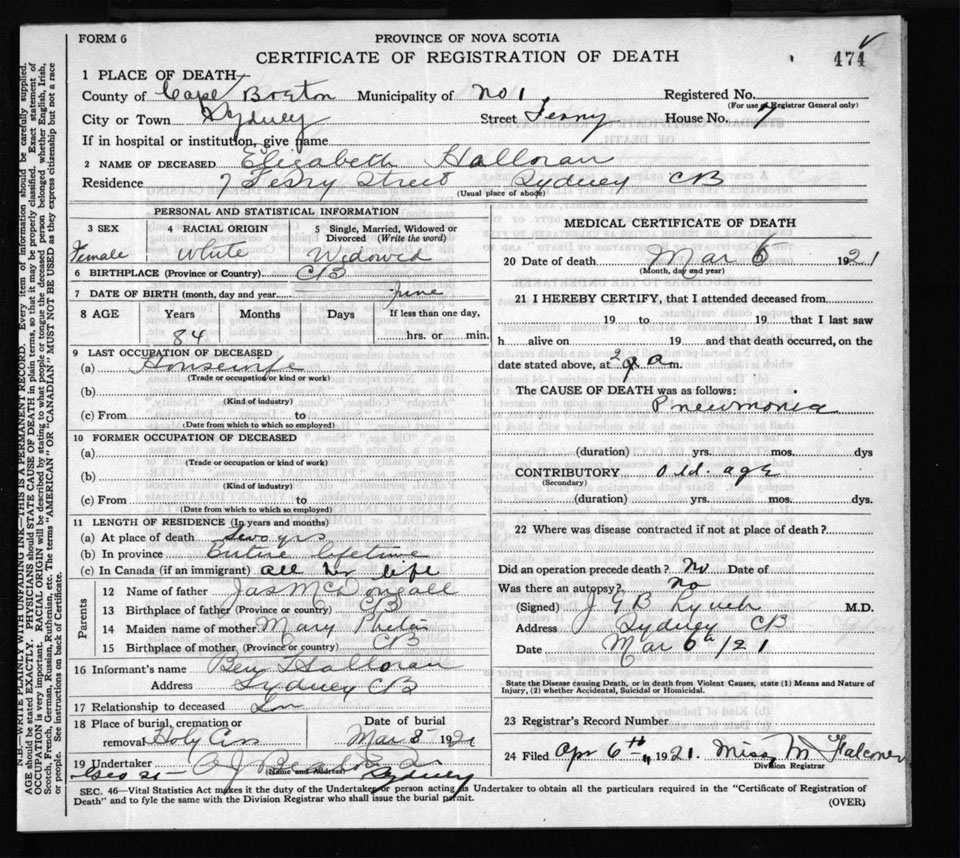 FORM 6
PROVINCE OF NOVA SCOTIA
CERTIFICATE OF REGISTRATION OF DEATH
474
1 PLACE OF DEATH—
County of Cape Breton Municipality of No 1 Registered No.
(For use of Registrar General only)
City or Town Sydney Street Ferry House No. 7
If in hospital or institution, give name
2 NAME OF DECEASED Elizabeth Halloran
Residence 7 Ferry Street Sydney CB
(Usual place of abode)
PERSONAL AND STATISTICAL INFORMATION
3 SEX
Female
4 RACIAL ORIGIN
White
5 Single, Married, Widowed or Divorced (Write the word)
Widowed
6 BIRTHPLACE (Province or Country) CB
7 DATE OF BIRTH (month, day and year) June
8 AGE Years Months Days If less than one day,
84 hrs. or min.
9 LAST OCCUPATION OF DECEASED
(a) Housewife
(Trade or occupation or kind or work)
(b)
(Kind of industry)
(c) From to
(Date from which to which so employed)
10 FORMER OCCUPATION OF DECEASED
(a)
(Trade or occupation or kind of work)
(b)
(Kind of industry)
(c) From to
(Date from which to which so employed)
11 LENGTH OF RESIDENCE (In years and months)
(a) At place of death Two yrs
(b) In province Entire lifetime
(c) In Canada (if an immigrant) all her life
Parents
12 Name of father Jas McDougall
13 Birthplace of father (Province or country) CB
14 Maiden name of mother Mary
15 Birthplace of mother (Province or country) CB
16 Informant's name Ben Halloran
Address Sydney CB
17 Relationship to deceased Son
18 Place of burial, cremation or removal Holy Cross
Date of burial
Mar 8 1921
19 Undertaker
(Name and Address) Sydney
MEDICAL CERTIFICATE OF DEATH
20 Date of death Mar 6 1921
(Month, day and year)
21 I HEREBY CERTIFY, that I attended deceased from
19 to 19 that I last saw
h alive on 19 and that death occurred, on the
date stated above, at a m.
The CAUSE OF DEATH was as follows:
Pneumonia
(duration) yrs. mos. dys
CONTRIBUTORY old age
(Secondary)
(duration) yrs. mos. dys.
22 Where was disease contracted if not at place of death?
Did an operation precede death? No Date of
Was there an autopsy? No
(Signed) J G B Lynch M.D.
Address Sydney CB
Date Mar 6th/21
State the Disease causing Death, or in death from Violent Causes, state (1) Means and Nature of
Injury, (2) whether Accidental, Suicidal or Homicidal.
23 Registrar's Record Number
24 Filed Apr 6th 1921. Miss M Falconer
Division Registrar
SEC. 46—Vital Statistics Act makes it the duty of the Undertaker or person acting as Undertaker to obtain all the particulars required in the "Certificate of Registration of
Death" and to fyle the same with the Division Registrar who shall issue the burial permit.
(OVER)
N.B.—WRITE PLAINLY WITH UNFADING INK—THIS IS A PERMANENT RECORD. Every item of information should be carefully supplied.
AGE should be stated EXACTLY. PHYSICIANS should STATE CAUSE OF DEATH in plain terms, so that it may be properly classified. Exact statement of
OCCUPATION is very important. RACIAL ORIGIN will be described by stating to what people or tongue the deceased person belonged whether English, Irish,
Scotch, French, German, Russian, Ruthenian, etc. The terms "AMERICAN" OR "CANADIAN" MUST NOT BE USED as they express citizenship but not a race
or people. See instructions on back of Certificate.